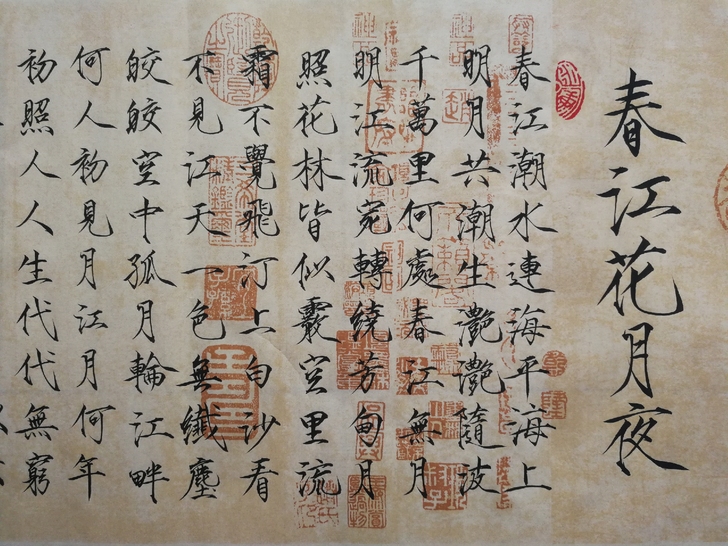 春江花月夜
春江潮水連海平海上
明月共潮生灧灧隨波
千萬里何處春江無月
明江流宛轉繞芳甸月
照花林皆似霰空里流
霜不覺飛汀上白沙看
不見江天一色無纖塵
皎皎空中孤月輪江畔
何人初見月江月何年
初照人人生代代無窮